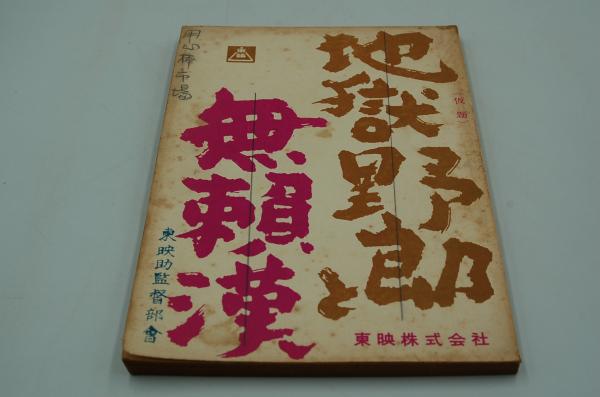 地獄野郎と
(仮題)
無頼漢
用心棒市場
東映
東映助監督部會
東映株式会社